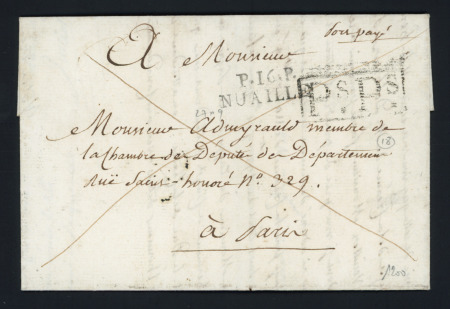 port payé
A Monsieur
P.16.P.
NOAILLE
P.S P.S
Monsieur Admyrauld membre de
la Chambre de Député de Département
Ruë Saint-honoré N.º 329.
18
à Paris
1200